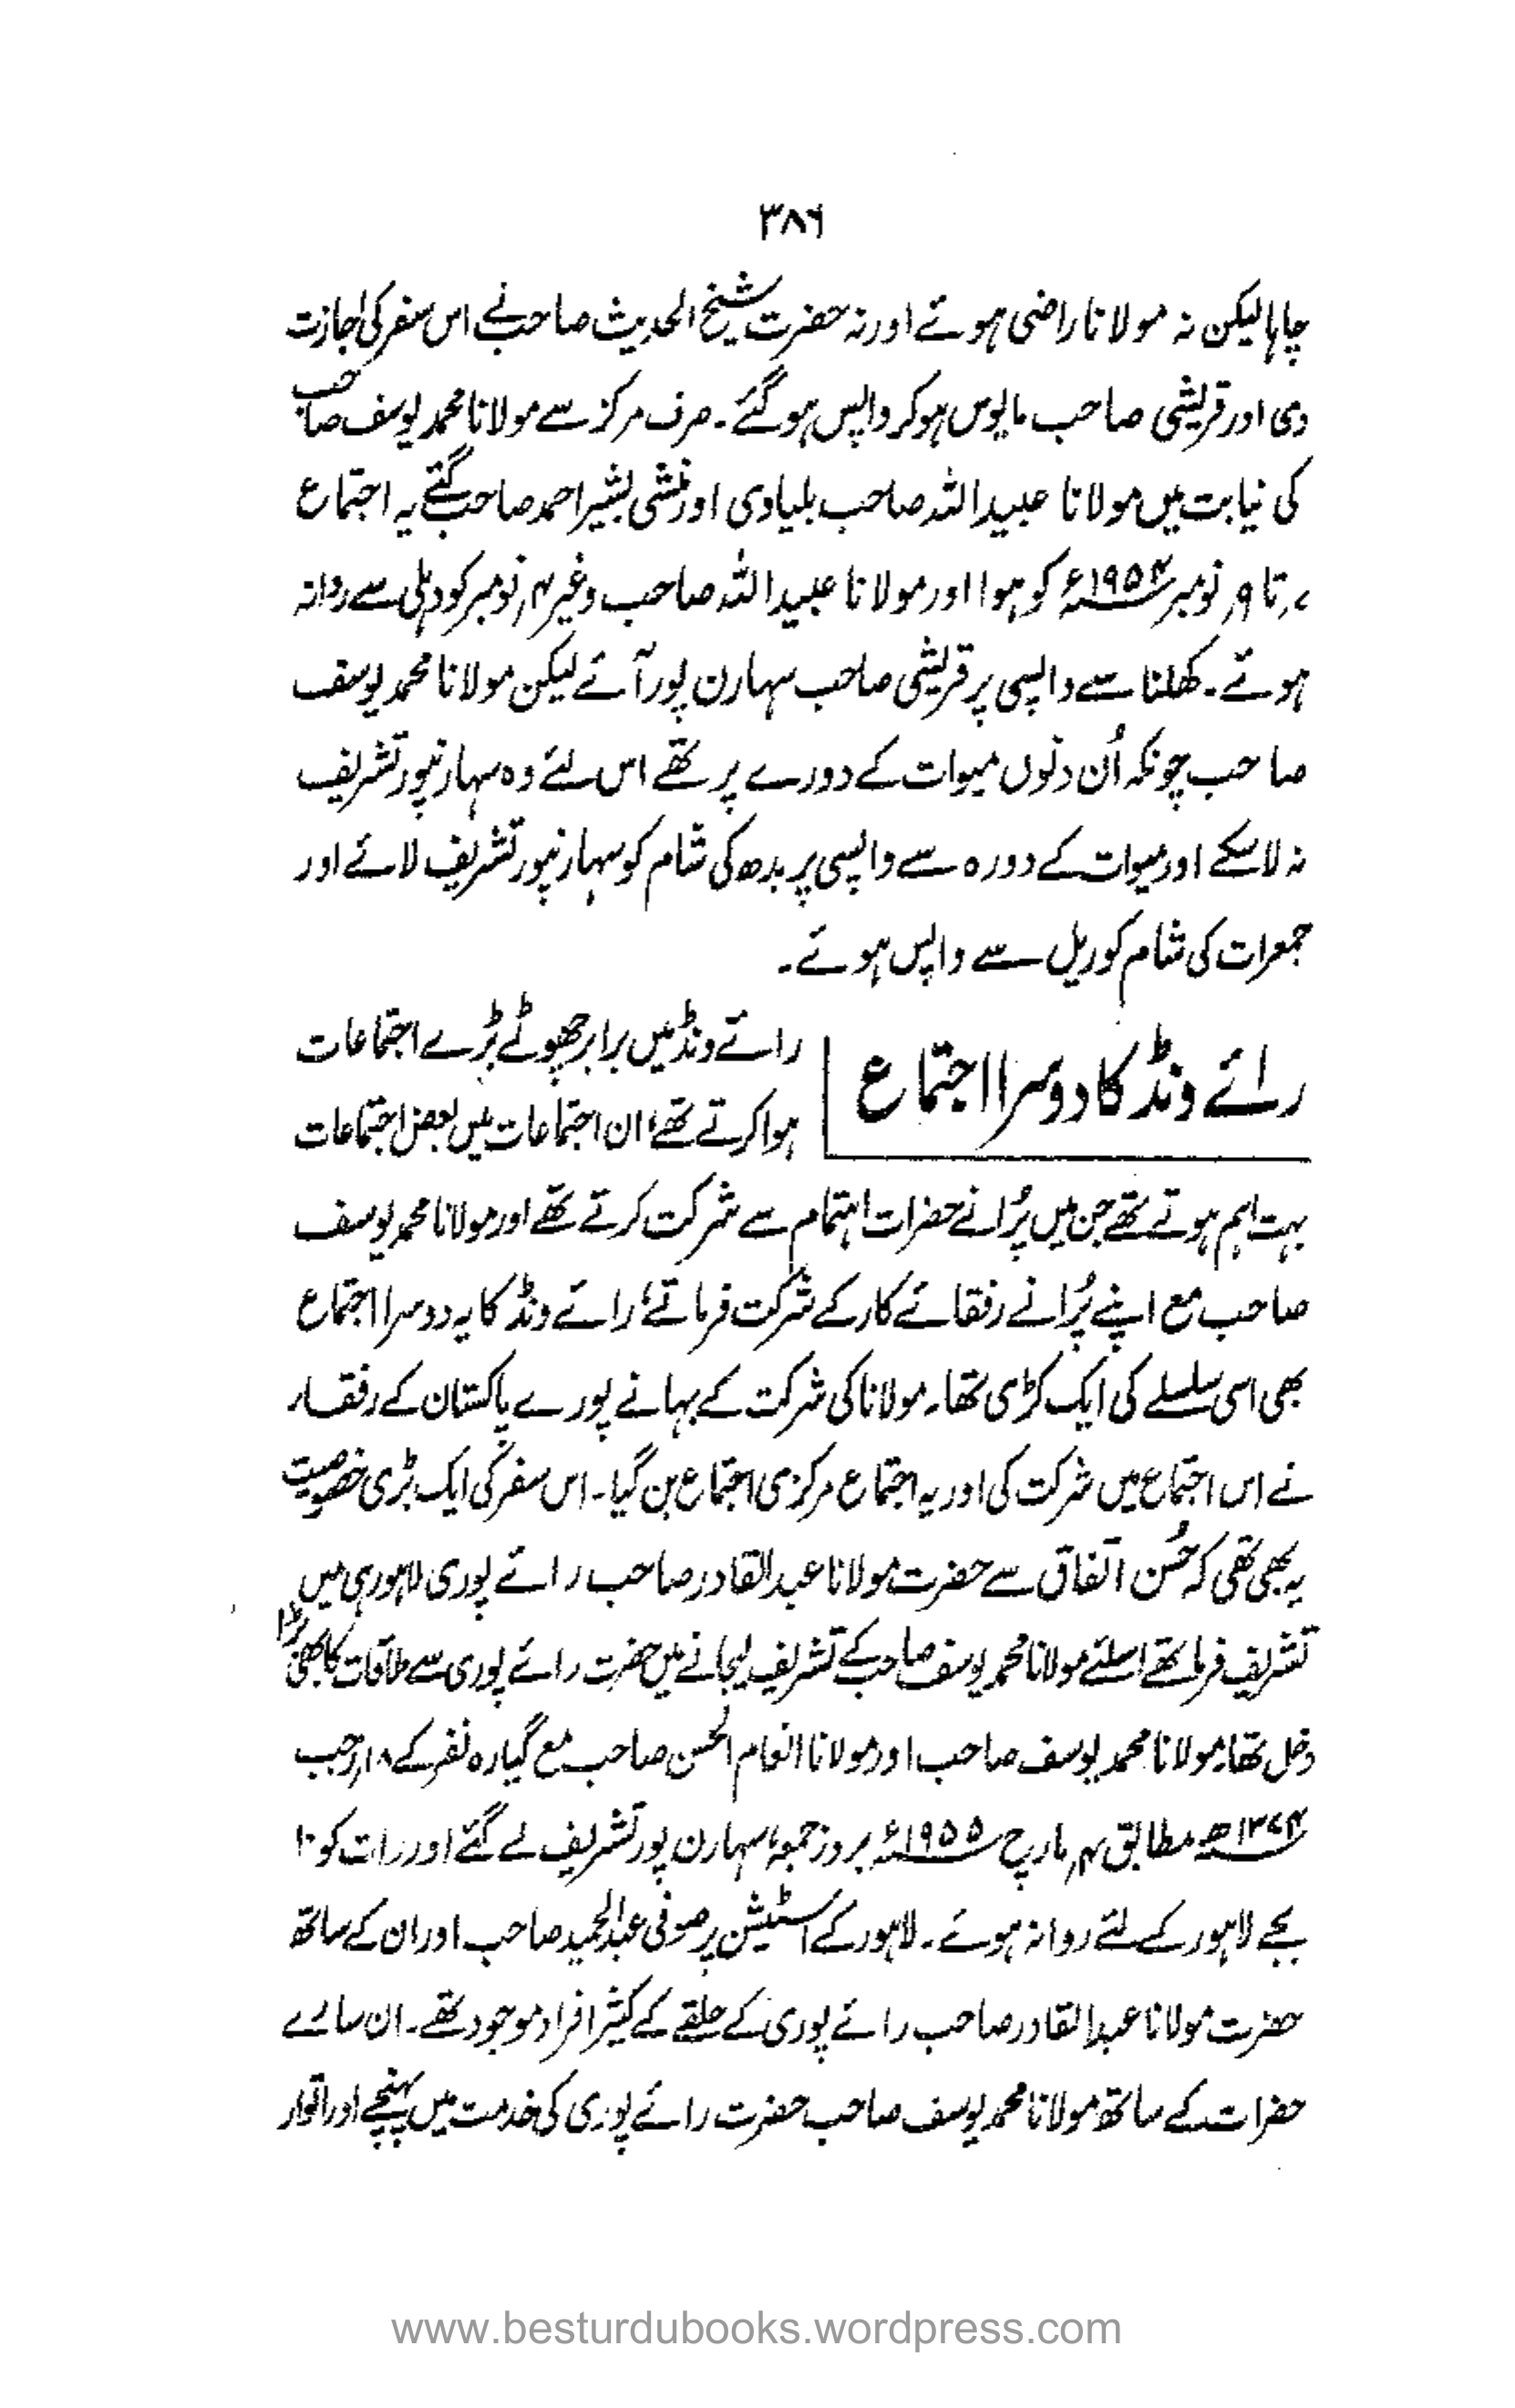 ۳۸۶
چاہا لیکن نہ مولانا راضی ہوئے اور نہ حضرت شیخ الحدیث صاحب نے اس سفر کی اجازت
دی اور قریشی صاحب مایوس ہو کر واپس ہو گئے۔ صرف مرکز سے مولانا محمد یوسف صاحب
کی نیابت میں مولانا عبید اللہ صاحب بلیاوی اور منشی بشیر احمد صاحب گئے یہ اجتماع
۷؍ تا ۹؍ نومبر ۱۹۵۴ء کو ہوا اور مولانا عبید اللہ صاحب وغیرہ ۴؍ نومبر کو دہلی سے روانہ
ہوئے۔ کھلنا سے واپسی پر قریشی صاحب سہارن پور آئے لیکن مولانا محمد یوسف
صاحب چونکہ اُن دنوں میوات کے دورے پر تھے اس لئے وہ سہارنپور تشریف
نہ لا سکے اور میوات کے دورہ سے واپسی پر بدھ کی شام کو سہارنپور تشریف لائے اور
جمعرات کی شام کو ریل سے واپس ہوئے۔
رائے ونڈ کا دوسرا اجتماع
رائے ونڈ میں برابر چھوٹے بڑے اجتماعات
ہوا کرتے تھے، ان اجتماعات میں بعض اجتماعات
بہت اہم ہوتے تھے جن میں پُرانے حضرات اہتمام سے شرکت کرتے تھے اور مولانا محمد یوسف
صاحب مع اپنے پُرانے رفقائے کار کے شرکت فرماتے، رائے ونڈ کا یہ دوسرا اجتماع
بھی اسی سلسلے کی ایک کڑی تھا۔ مولانا کی شرکت کے بہانے پورے پاکستان کے رفقاء
نے اس اجتماع میں شرکت کی اور یہ اجتماع مرکزی اجتماع بن گیا۔ اس سفر کی ایک بڑی خصوصیت
یہ بھی تھی کہ حُسن اتفاق سے حضرت مولانا عبد القادر صاحب رائے پوری لاہور ہی میں
تشریف فرما تھے اسلئے مولانا محمد یوسف صاحب کے تشریف لیجانے میں حضرت رائے پوری سے ملاقات کا بھی بڑا
دخل تھا۔ مولانا محمد یوسف صاحب اور مولانا انعام الحسن صاحب مع گیارہ نفر کے ۱۸؍ رجب
۱۳۷۴ھ مطابق ۴؍ مارچ ۱۹۵۵ء بروز جمعہ، سہارن پور تشریف لے گئے اور رات کو ۱۰
بجے لاہور کے لئے روانہ ہوئے۔ لاہور کے اسٹیشن پر صوفی عبد الحمید صاحب اور ان کے ساتھ
حضرت مولانا عبد القادر صاحب رائے پوری کے حلقے کے کثیر افراد موجود تھے۔ ان سارے
حضرات کے ساتھ مولانا محمد یوسف صاحب حضرت رائے پوری کی خدمت میں پہنچے اور اتوار
www.besturdubooks.wordpress.com